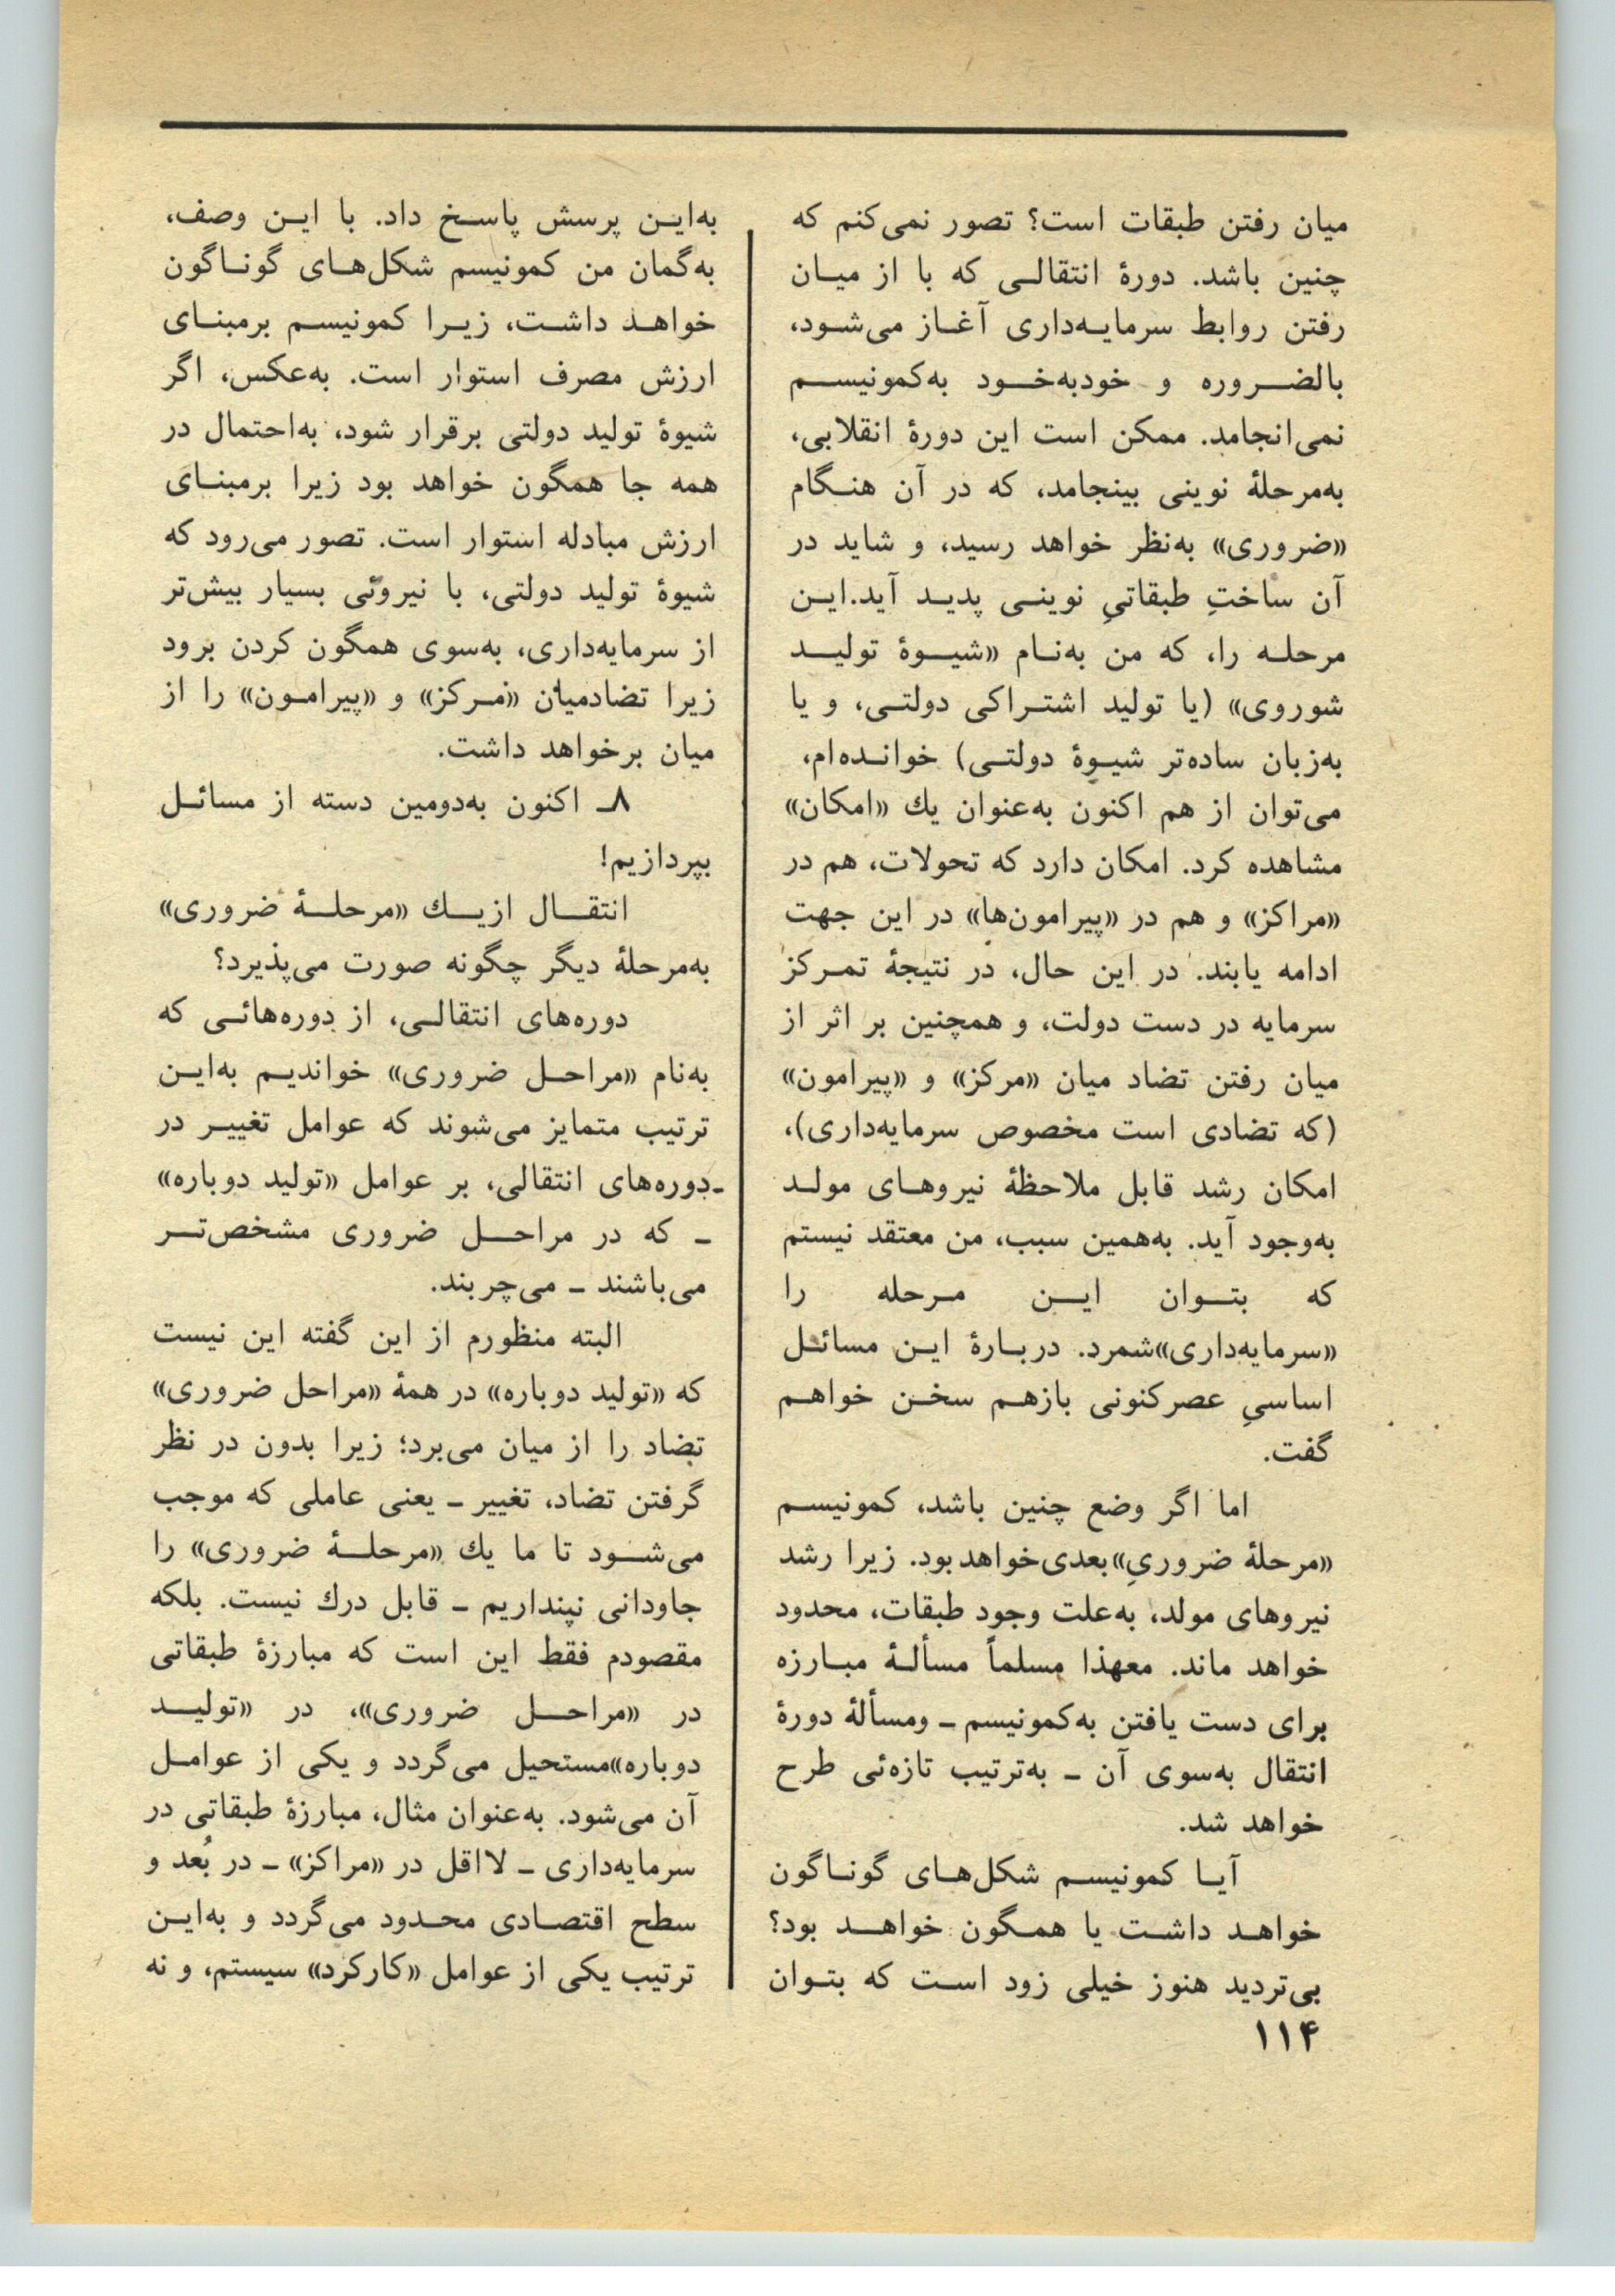 میان رفتن طبقات است؟ تصور نمی‌کنم که
چنین باشد. دورهٔ انتقالی که با از میان
رفتن روابط سرمایه‌داری آغاز می‌شود،
بالضروره و خودبه‌خود به‌کمونیسم
نمی‌انجامد. ممکن است این دورهٔ انقلابی،
به‌مرحلهٔ نوینی بینجامد، که در آن هنگام
«ضروری» به‌نظر خواهد رسید، و شاید در
آن ساختِ طبقاتیِ نوینی پدید آید.این
مرحله را، که من به‌نام «شیوهٔ تولید
شوروی» (یا تولید اشتراکی دولتی، و یا
به‌زبان ساده‌تر شیوهٔ دولتی) خوانده‌ام،
می‌توان از هم اکنون به‌عنوان یك «امکان»
مشاهده کرد. امکان دارد که تحولات، هم در
«مراکز» و هم در «پیرامون‌ها» در این جهت
ادامه یابند. در این حال، در نتیجهٔ تمرکز
سرمایه در دست دولت، و همچنین بر اثر از
میان رفتن تضاد میان «مرکز» و «پیرامون»
(که تضادی است مخصوص سرمایه‌داری)،
امکان رشد قابل ملاحظهٔ نیروهای مولد
به‌وجود آید. به‌همین سبب، من معتقد نیستم
که بتوان این مرحله را
«سرمایه‌داری»شمرد. دربارهٔ این مسائل
اساسیِ عصرکنونی بازهم سخن خواهم
گفت.
اما اگر وضع چنین باشد، کمونیسم
«مرحلهٔ ضروریِ»بعدی‌خواهد بود. زیرا رشد
نیروهای مولد، به‌علت وجود طبقات، محدود
خواهد ماند. معهذا مسلماً مسألهٔ مبارزه
برای دست یافتن به‌کمونیسم ـ ومسألهٔ دورهٔ
انتقال به‌سوی آن ـ به‌ترتیب تازه‌ئی طرح
خواهد شد.
آیا کمونیسم شکل‌های گوناگون
خواهد داشت یا همگون خواهد بود؟
بی‌تردید هنوز خیلی زود است که بتوان
۱۱۴
به‌این پرسش پاسخ داد. با این وصف،
به‌گمان من کمونیسم شکل‌های گوناگون
خواهد داشت، زیرا کمونیسم برمبنای
ارزش مصرف استوار است. به‌عکس، اگر
شیوهٔ تولید دولتی برقرار شود، به‌احتمال در
همه جا همگون خواهد بود زیرا برمبنای
ارزش مبادله استوار است. تصور می‌رود که
شیوهٔ تولید دولتی، با نیروئی بسیار بیش‌تر
از سرمایه‌داری، به‌سوی همگون کردن برود
زیرا تضادمیان «مرکز» و «پیرامون» را از
میان برخواهد داشت.
۸ـ اکنون به‌دومین دسته از مسائل
بپردازیم!
انتقال ازیك «مرحلهٔ ضروری»
به‌مرحلهٔ دیگر چگونه صورت می‌پذیرد؟
دوره‌های انتقالی، از دوره‌هائی که
به‌نام «مراحل ضروری» خواندیم به‌این
ترتیب متمایز می‌شوند که عوامل تغییر در
ـدوره‌های انتقالی، بر عوامل «تولید دوباره»
ـ که در مراحل ضروری مشخص‌تر
می‌باشند ـ می‌چربند.
البته منظورم از این گفته این نیست
که «تولید دوباره» در همهٔ «مراحل ضروری»
تضاد را از میان می‌برد؛ زیرا بدون در نظر
گرفتن تضاد، تغییر ـ یعنی عاملی که موجب
می‌شود تا ما یك «مرحلهٔ ضروری» را
جاودانی نپنداریم ـ قابل درك نیست. بلکه
مقصودم فقط این است که مبارزهٔ طبقاتی
در «مراحل ضروری»، در «تولید
دوباره»مستحیل می‌گردد و یکی از عوامل
آن می‌شود. به‌عنوان مثال، مبارزهٔ طبقاتی در
سرمایه‌داری ـ لااقل در «مراکز» ـ در بُعد و
سطح اقتصادی محدود می‌گردد و به‌این
ترتیب یکی از عوامل «کارکرد» سیستم، و نه